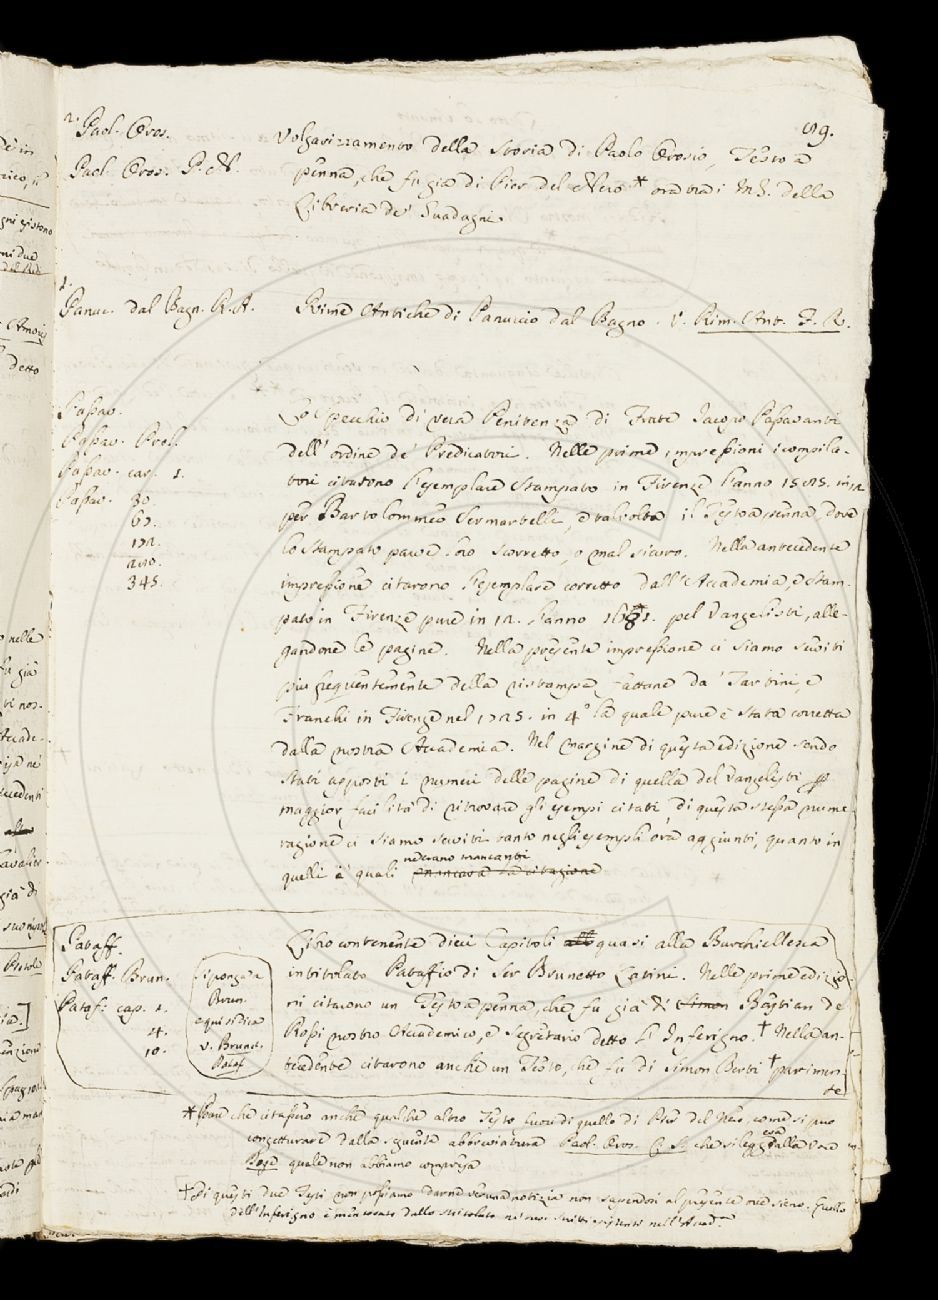 59.
2. Paol. Oros.
Paol. Oros. P. N.
Volgarizzamento della Storia di Paolo Orosio, Testo a
penna, che fu già di Pier del Nero * ora tra i MS. della
Libreria de' Guadagni.
1.
Panuc. dal Bagn. R. A.
Rime Antiche di Panuccio dal Bagno. V. Rim. Ant. F. R.
Passav.
Passav. Prol.
Passav. car. 1.
Passav. 30.
60.
172.
210.
345.
Lo Specchio di vera Penitenza di Frate Jacopo Passavanti
dell' ordine de' Predicatori. Nelle prime impressioni i compila-
tori citarono l'esemplare stampato in Firenze l'anno 1585. in 12
per Bartolommeo Sermartelli, e talvolta il Testo a penna, dove
lo stampato parve loro scorretto, o mal sicuro. Nella antecedente
impressione citarono l'esemplare corretto dall'Accademia, e stam-
pato in Firenze pure in 12. l'anno 1681. pel Vangelisti, alle-
gandone le pagine. Nella presente impressione ci siamo serviti
più frequentemente della ristampa fattane da' Tartini, e
Franchi in Firenze nel 1725. in 4º la quale pure è stata corretta
dalla nostra Accademia. Nel margine di questa edizione sendo
stati apposti i numeri delle pagine di quella del Vangelisti p
maggior facilità di ritrovare gli esempi citati, di questa stessa nume
razione ci siamo serviti tanto negli esempli ora aggiunti, quanto in
ne erano mancanti
quelli a' quali mancava la citazione
Pataff.
Pataff. Brun.
Pataf. cap. 1.
4.
10.
si ponga a
Brun.
e qui si dica
v. Brunet.
Pataf
Libro contenente dieci Capitoli all quasi alla Burchiellesca
intitolato Pataffio di Ser Brunetto Latini. Nelle prime edizio-
ni citarono un Testo a penna, che fu già di Simon Bastian de'
Rossi nostro Accademico, e Segretario detto l'Inferigno. † Nella an-
tecedente citarono anche un Testo, che fu di Simon Berti † parimen-
te
* Pare che citassero anche qualche altro Testo fuori di quello di Pier del Nero, come si può
congetturare dalla seguente abbreviatura Paol. Oros. C. S. che si legge alla voce
quale non abbiamo compresa
† Di questi due Testi non possiamo darne veruna notizia non sapendosi al presente ove sieno. Quello
dell'Inferigno è mentovato dallo Smitolato ne' suoi scritti esistenti nell'Accad.